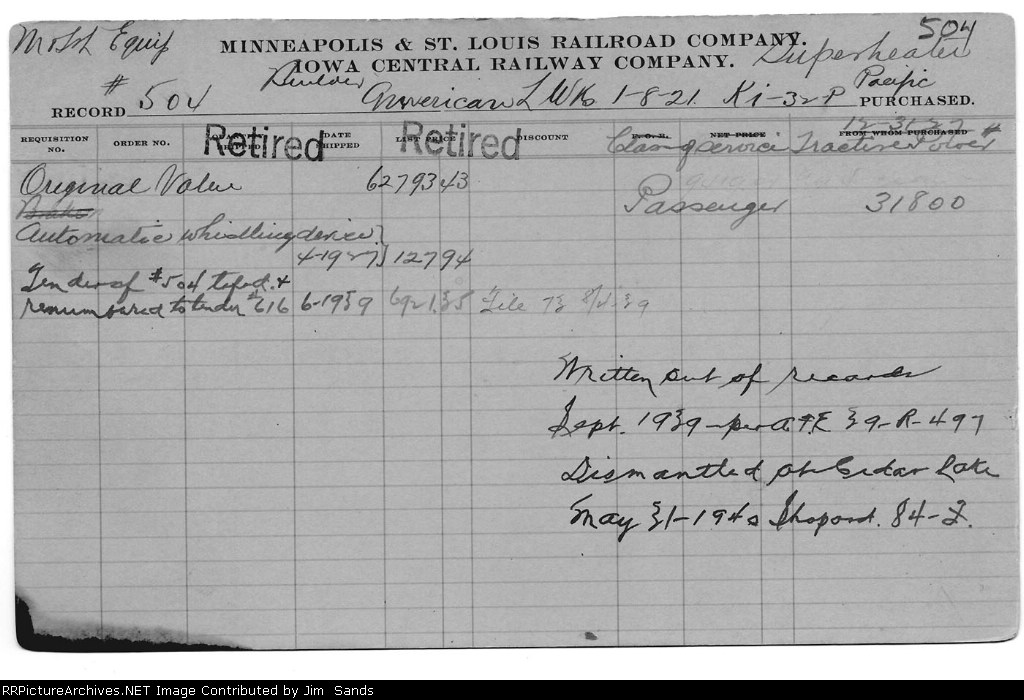 504
MINNEAPOLIS & ST. LOUIS RAILROAD COMPANY.
IOWA CENTRAL RAILWAY COMPANY. Superheater
Builder Pacific
RECORD # 504 American L Wks 1-8-21. K1-32P PURCHASED.
12-31-27
REQUISITION NO. ORDER NO. DATE SHIPPED LAST PRICE DISCOUNT F. O. B. NET PRICE FROM WHOM PURCHASED
Retired Retired
Class service Tractive Power #
Original Value 62793 43
Passenger 31800
Automatic whistling device
4-1927 127 94
Tender of #504 &
renumbered to tender #616 6-1939 6921.35 File 73
Written out of records
Sept. 1939 - per A.F.E. 39-R-497
Dismantled at Cedar Lake
May 31-1940 84-
RRPictureArchives.NET Image Contributed by Jim Sands